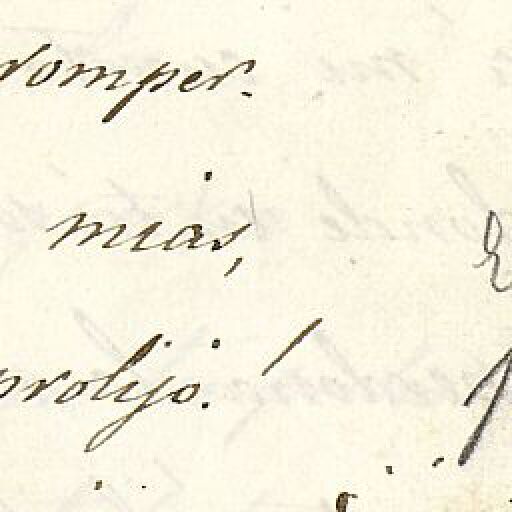 romper.
mias,
prolijo. /